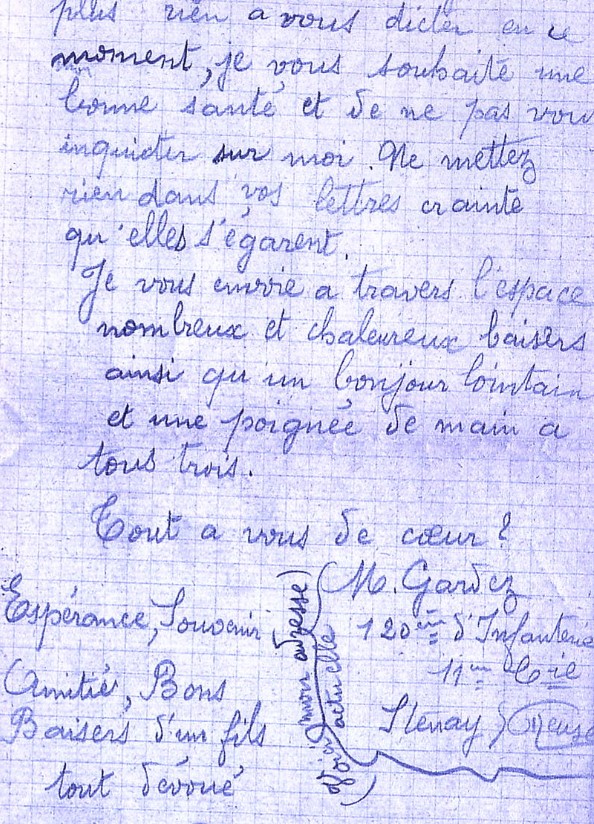 plus rien a vous dicter en ce
moment, je vous souhaite une
bonne santé et de ne pas vou
inquieter sur moi. Ne mettez
rien dans vos lettres crainte
qu'elles s'égarent.
Je vous envoie a travers l'espace
nombreux et chaleureux baisers
ainsi qu'un bonjour lointain
et une poignée de main a
tous trois.
Tout a vous de cœur?
Espérance, Souvenir
Amitié, Bons
Baisers d'un fils
tout dévoué
mon adresse)
actuelle
(M. Gardez
120em d'Infanterie
11em Cie
Stenay (Meuse